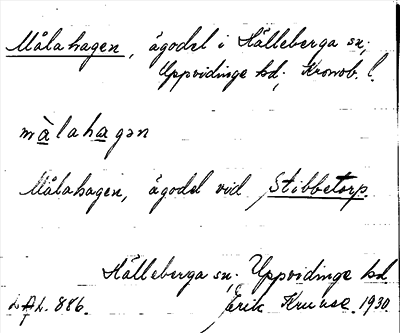 Målahagen, ägodel i Hälleberga sn;
Uppvidinge hd; Kronob. l.
màlahagən
Målahagen, ägodel vid Stibbetorp.
Hälleberga sn. Uppvidinge hd.
LAL. 886. Erik Kruuse. 1930.